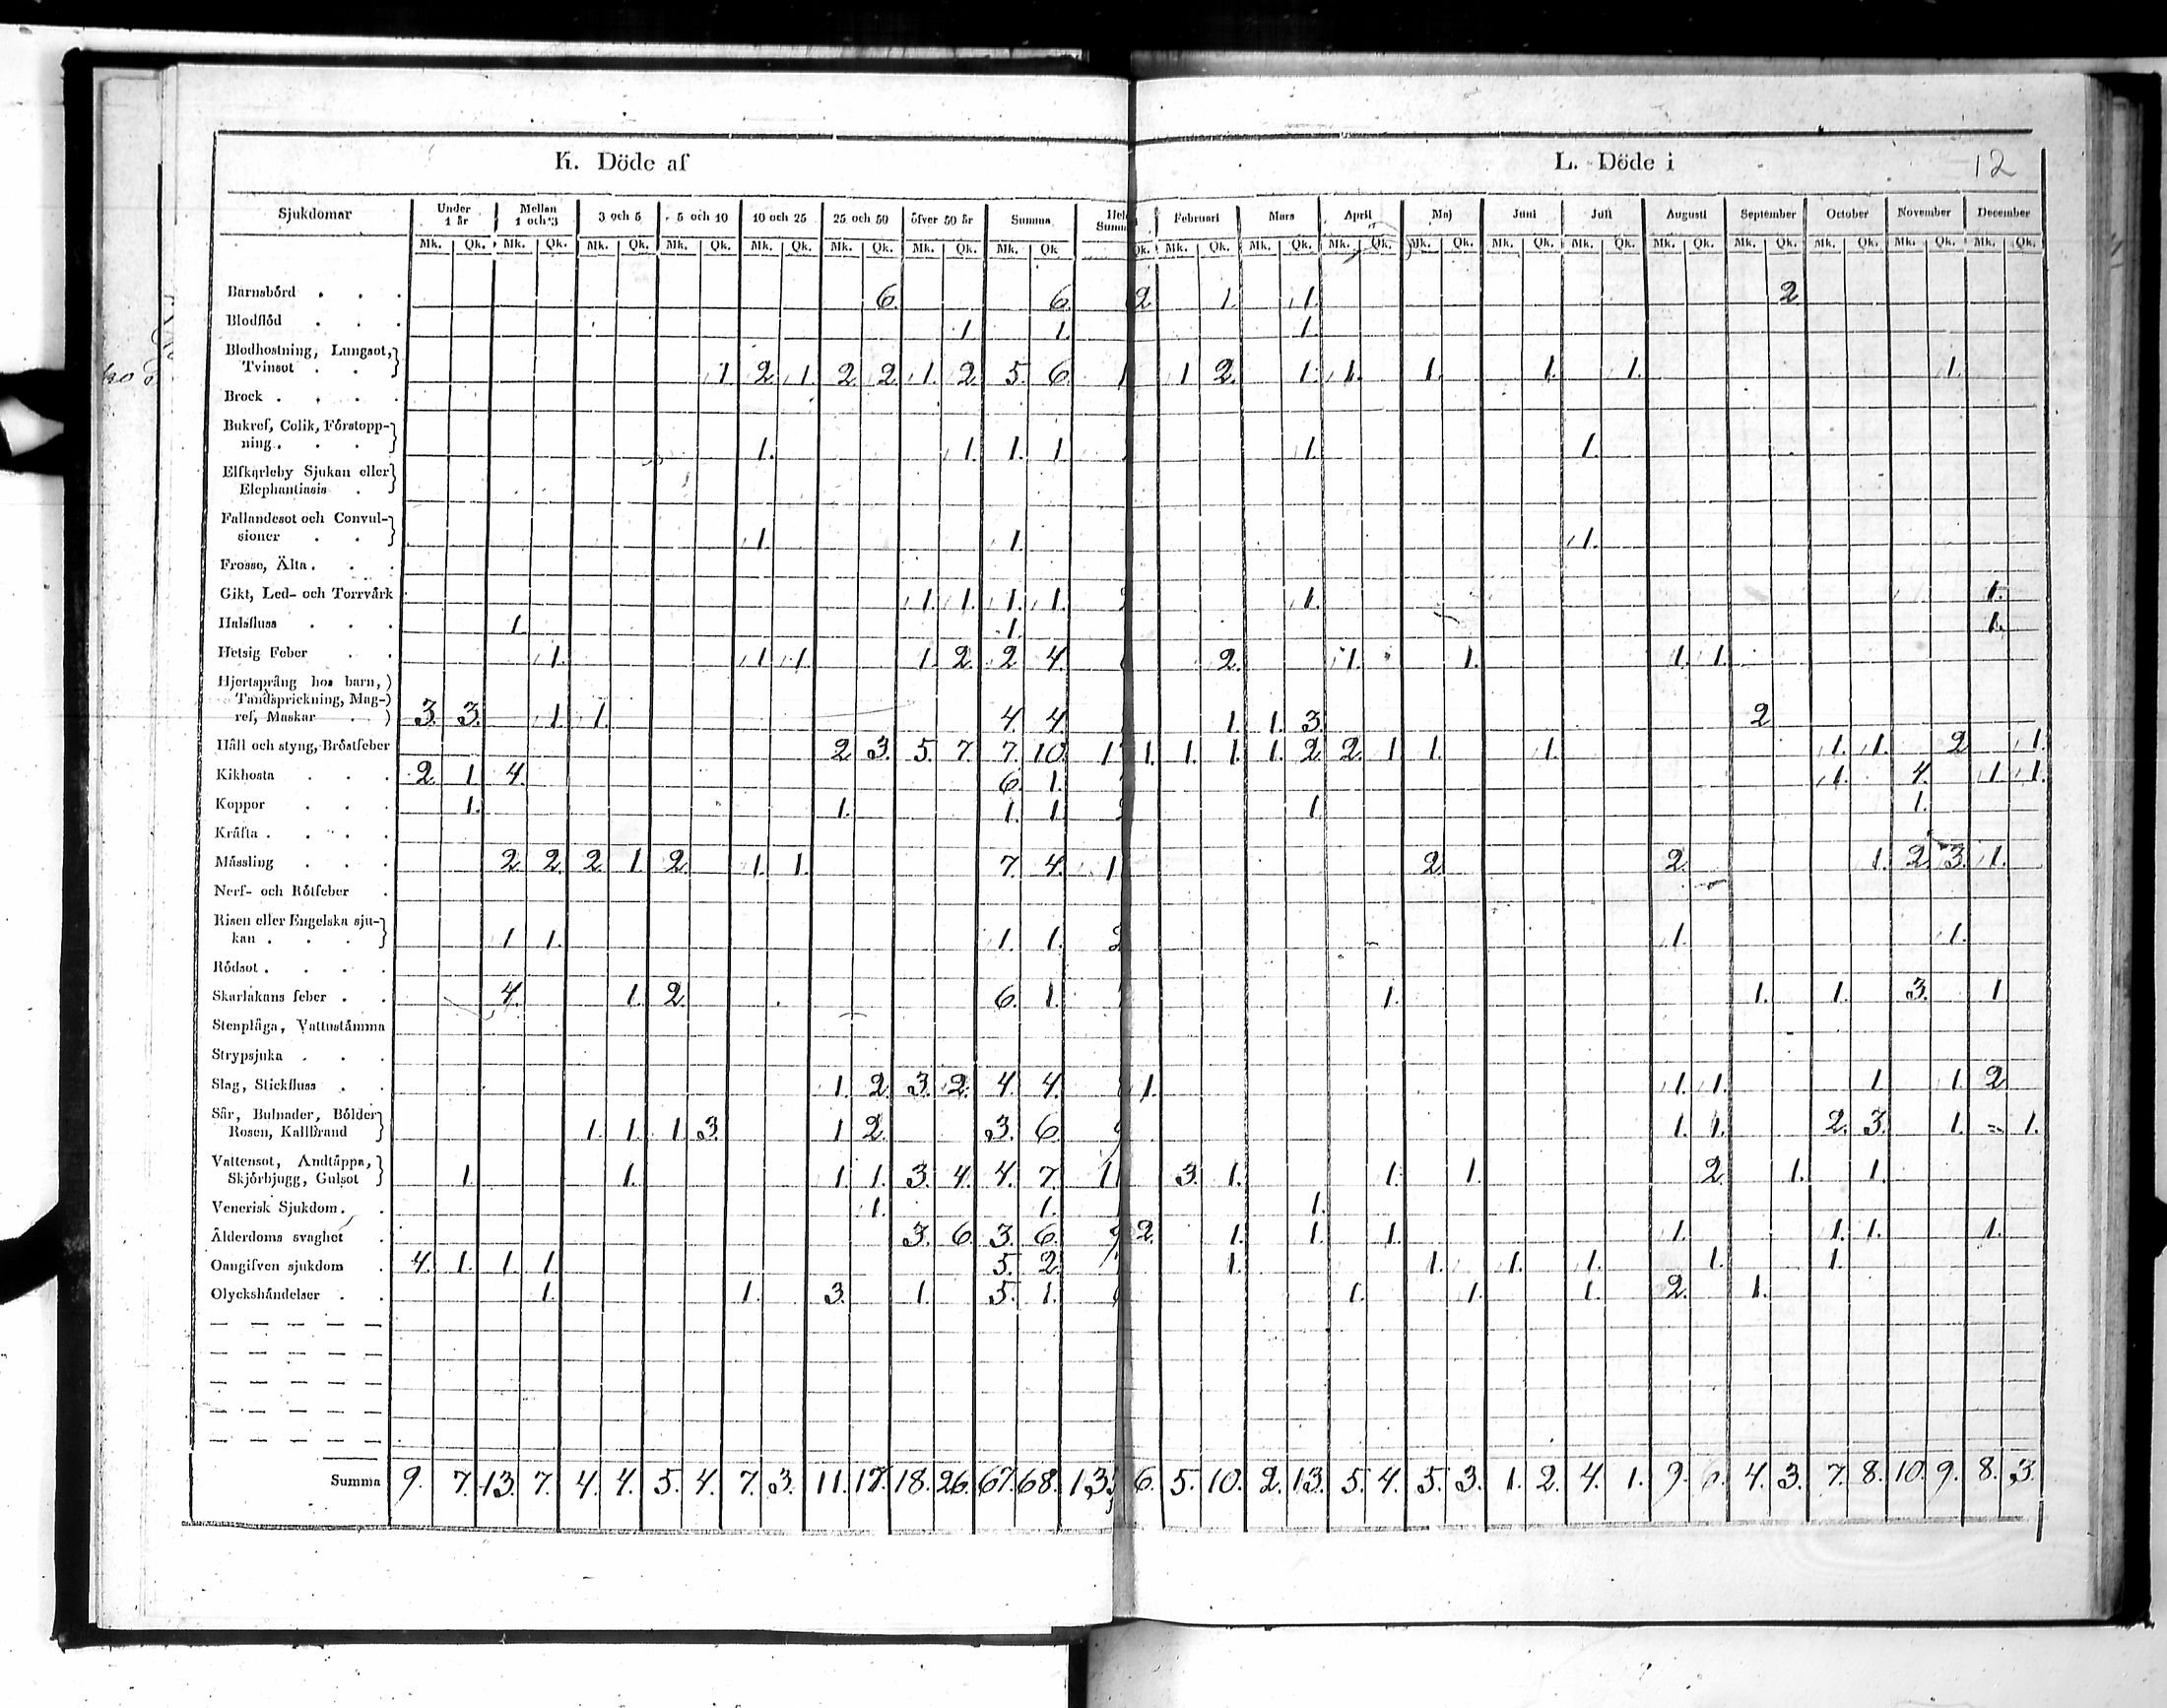 K. Döde af
L. Döde i
12
Sjukdomar Under 1 år Mellan 1 och 3 3 och 5 5 och 10 10 och 25 25 och 50 öfver 50 år Summa Februari Mars April Maj Juni Juli Augusti September October November December
Mk. Qk. Mk. Qk. Mk. Qk. Mk. Qk. Mk. Qk. Mk. Qk. Mk. Qk. Mk. Qk Qk. Mk. Qk. Mk. Qk. Mk. Qk. Mk. Qk. Mk. Qk. Mk. Qk. Mk. Qk. Mk. Qk. Mk. Qk. Mk. Qk. Mk. Qk.
Barnsbörd . . . 6. 6. 2 1. 1. 2
Blodflöd . . . 1. 1. 1.
Blodhostning, Lungsot,
Tvinsot . . 1. 2. 1. 2. 2. 1. 2. 5. 6. 1 1 2. 1. 1. 1. 1. 1. 1.
Brock . . . .
Bukref, Colik, Förstopp-
ning . . . 1. 1. 1. 1. 1. 1.
Elfkarleby Sjukan eller
Elephantiasis .
Fallandesot och Convul-
sioner . . 1. 1. 1.
Frosse, Älta . . .
Gikt, Led- och Torrvärk 1. 1. 1. 1. 1. 1.
Halsfluss . . . 1. 1. 1.
Hetsig Feber . . 1. 1. 1. 1. 2. 2. 4. 2. 1. 1. 1. 1.
Hjertsprång hos barn,
Tandsprickning, Mag-
ref, Maskar . . 3. 3. 1. 1. 4. 4. 1. 1. 3. 2
Håll och styng, Bröstfeber 2. 3. 5. 7. 7. 10. 1 1. 1. 1. 1. 2. 2. 1 1. 1. 1. 1. 2 1.
Kikhosta . . . 2. 1. 4. 6. 1. 1. 4. 1. 1.
Koppor . . . 1. 1. 1. 1. 1. 1.
Kräfta . . . .
Mässling . . . 2. 2. 2. 1. 2. 1. 1. 7. 4. 1 2. 2. 1. 2. 3. 1.
Nerf- och Rötfeber .
Risen eller Engelska sju-
kan . . . 1. 1. 1. 1. 2 1. 1.
Rödsot . . . .
Skarlakans feber . . 4. 1. 2. 6. 1. 1. 1. 1. 3. 1
Stenplåga, Vattustämma
Strypsjuka . . .
Slag, Stickfluss . . 1. 2. 3. 2. 4. 4. 1. 1. 1. 1 1. 2
Sår, Bulnader, Bölder
Rosen, Kallbrand 1. 1. 1. 3. 1 2. 3. 6. 1. 1. 2. 3. 1. 1.
Vattensot, Andtäppa,
Skjörbjugg, Gulsot 1. 1. 1. 1. 3. 4. 4. 7. 11 3. 1. 1. 1. 2. 1. 1.
Venerisk Sjukdom . . 1. 1. 1.
Ålderdoms svaghet . 3. 6. 3. 6. 9 2. 1. 1. 1. 1. 1. 1. 1.
Oangifven sjukdom . 4. 1. 1. 1. 5. 2. 1. 1. 1. 1. 1. 1.
Olyckshändelser . . 1. 1. 3. 1. 5. 1. 1. 1. 1. 2. 1.
Summa 9. 7. 13. 7. 4. 4. 5. 4. 7. 3. 11. 17. 18. 26. 67. 68. 135 6. 5. 10. 2. 13. 5. 4. 5. 3. 1. 2. 4. 1. 9. 4. 3. 7. 8. 10. 9. 8. 3.